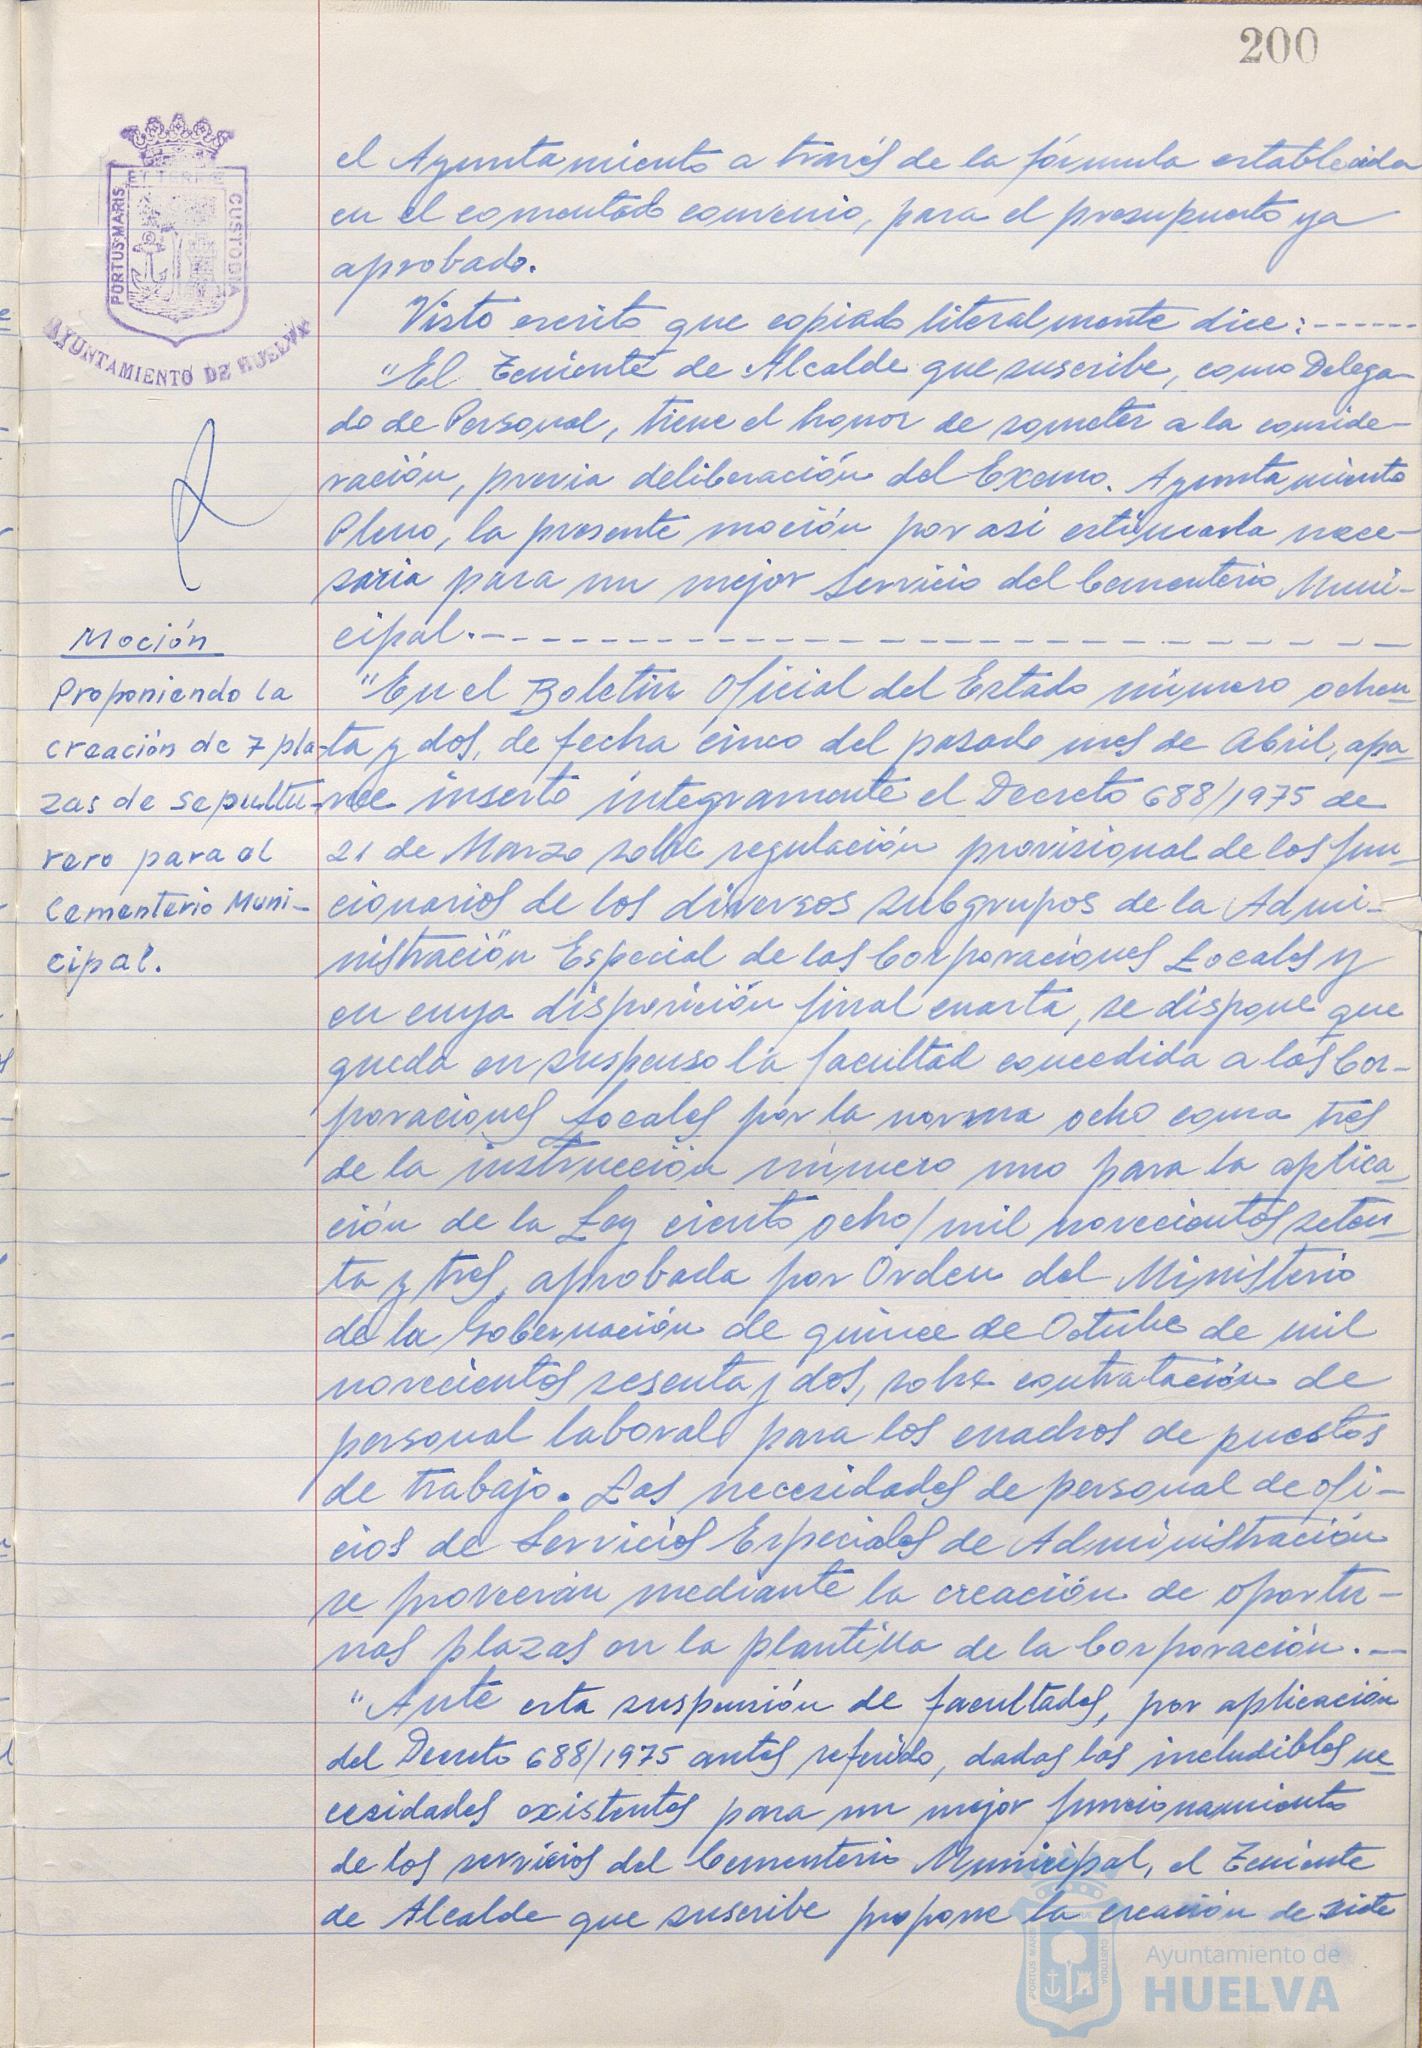 200
PORTUS MARIS ET TERRE CUSTODIA
AYUNTAMIENTO DE HUELVA
el Ayuntamiento a través de la fórmula establecida
en el comentado convenio, para el presupuesto ya
aprobado.
Visto escrito que copiado literalmente dice:------
"El Teniente de Alcalde que suscribe, como Delega-
do de Personal, tiene el honor de someter a la conside-
ración, previa deliberación del Excmo. Ayuntamiento
Pleno, la presente moción por así estimarla nece-
saria para un mejor servicio del Cementerio Muni-
cipal.-------------------
Moción
Proponiendo la
creación de 7 pla-
zas de sepultu-
rero para el
Cementerio Muni-
cipal.
"En el Boletín Oficial del Estado número ochen-
ta y dos, de fecha cinco del pasado mes de Abril, apa-
rece inserto íntegramente el Decreto 688/1975 de
21 de Marzo sobre regulación provisional de los fun-
cionarios de los diversos subgrupos de la Admi-
nistración Especial de las Corporaciones Locales y
en cuya disposición final cuarta, se dispone que
queda en suspenso la facultad concedida a las Cor-
poraciones Locales por la norma ocho coma tres
de la instrucción número uno para la aplica-
ción de la Ley ciento ocho/mil novecientos seten-
ta y tres, aprobada por Orden del Ministerio
de la Gobernación de quince de Octubre de mil
novecientos sesenta y dos, sobre contratación de
personal laboral para los cuadros de puestos
de trabajo. Las necesidades de personal de ofi-
cios de Servicios Especiales de Administración
se proveerán mediante la creación de oportu-
nas plazas en la plantilla de la Corporación.-
"Ante esta suspensión de facultades, por aplicación
del Decreto 688/1975 antes referido, dadas las ineludibles ne-
cesidades existentes para un mejor funcionamiento
de los servicios del Cementerio Municipal, el Teniente
de Alcalde que suscribe propone la creación de siete
Ayuntamiento de
HUELVA